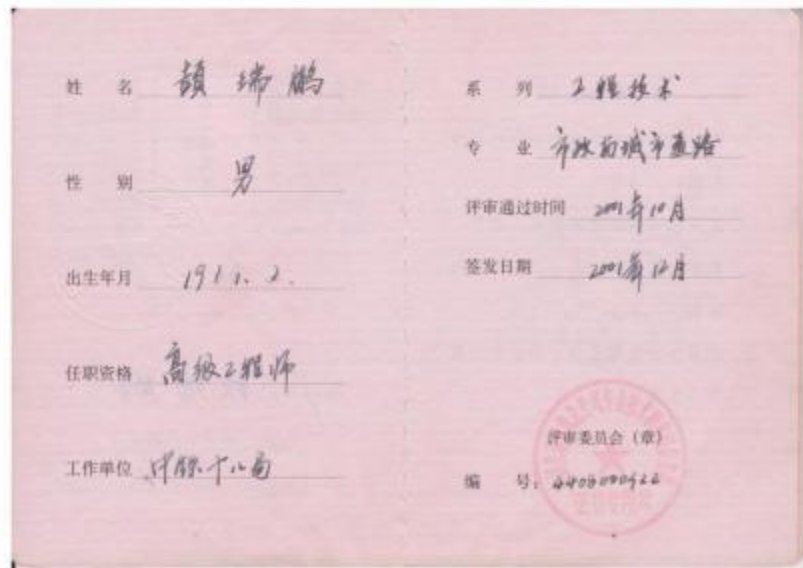 姓 名 颉瑞鹏
性 别 男
出生年月
任职资格 高级工程师
工作单位 中铁十八局
系 列 工程技术
专 业 市政 城市道路
评审通过时间 2001年10月
签发日期 2001年12月
评审委员会(章)
编 号: